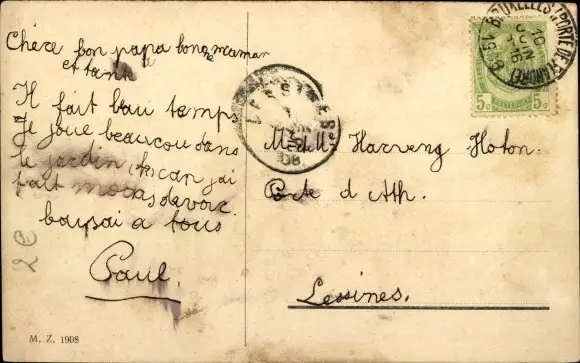 Chère bon papa bonne maman
et tante
Il fait bau temps
Je joue beaucou dans
le jardin can jai
fait mocas devoir.
baisai a tous
Paul.
2€
M. Z. 1908
BRUXELLES (PORTE DE FLANDRE)
10
JUIN
5c 5c
LESSINES
08
M. et Mme Harveng Hoton.
Porte d Ath.
Lessines.